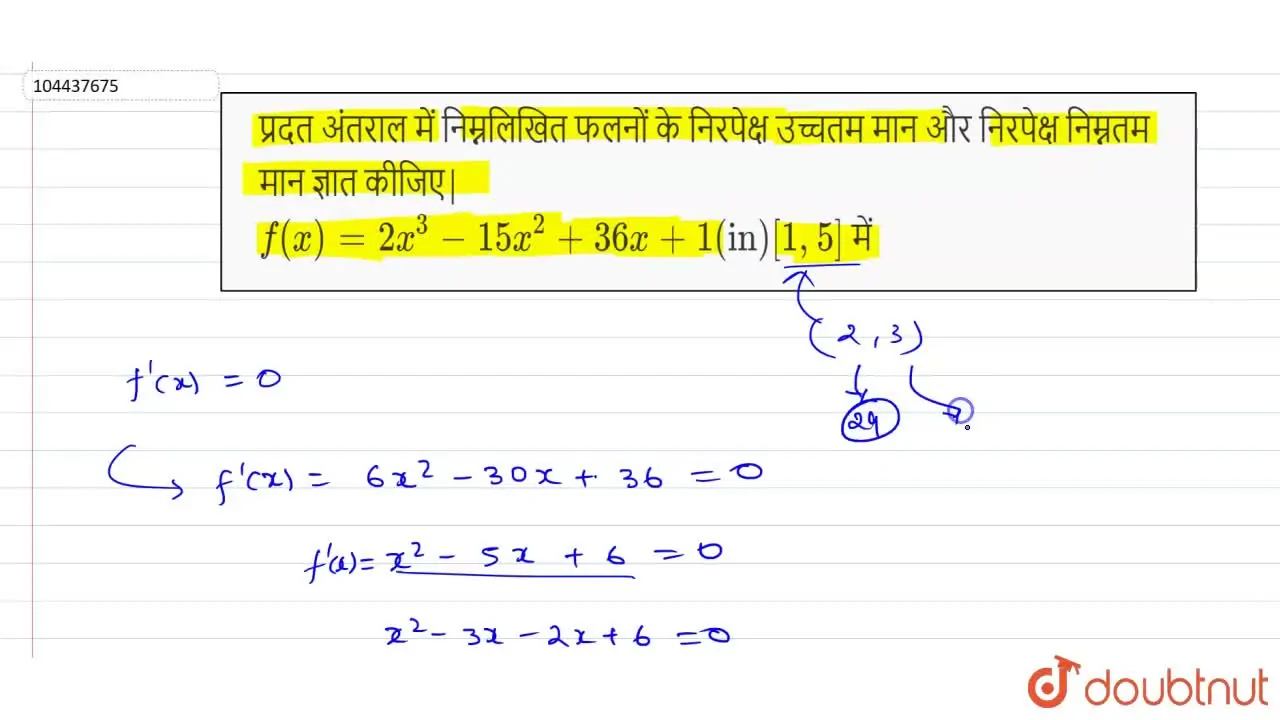 104437675
प्रदत अंतराल में निम्नलिखित फलनों के निरपेक्ष उच्चतम मान और निरपेक्ष निम्नतम
मान ज्ञात कीजिए|
f(x) = 2x³ − 15x² + 36x + 1(in)[1, 5] में
(2, 3)
f'(x) = 0
29
f'(x) = 6x² − 30x + 36 = 0
f'(x) = x² − 5x + 6 = 0
x² − 3x − 2x + 6 = 0
doubtnut